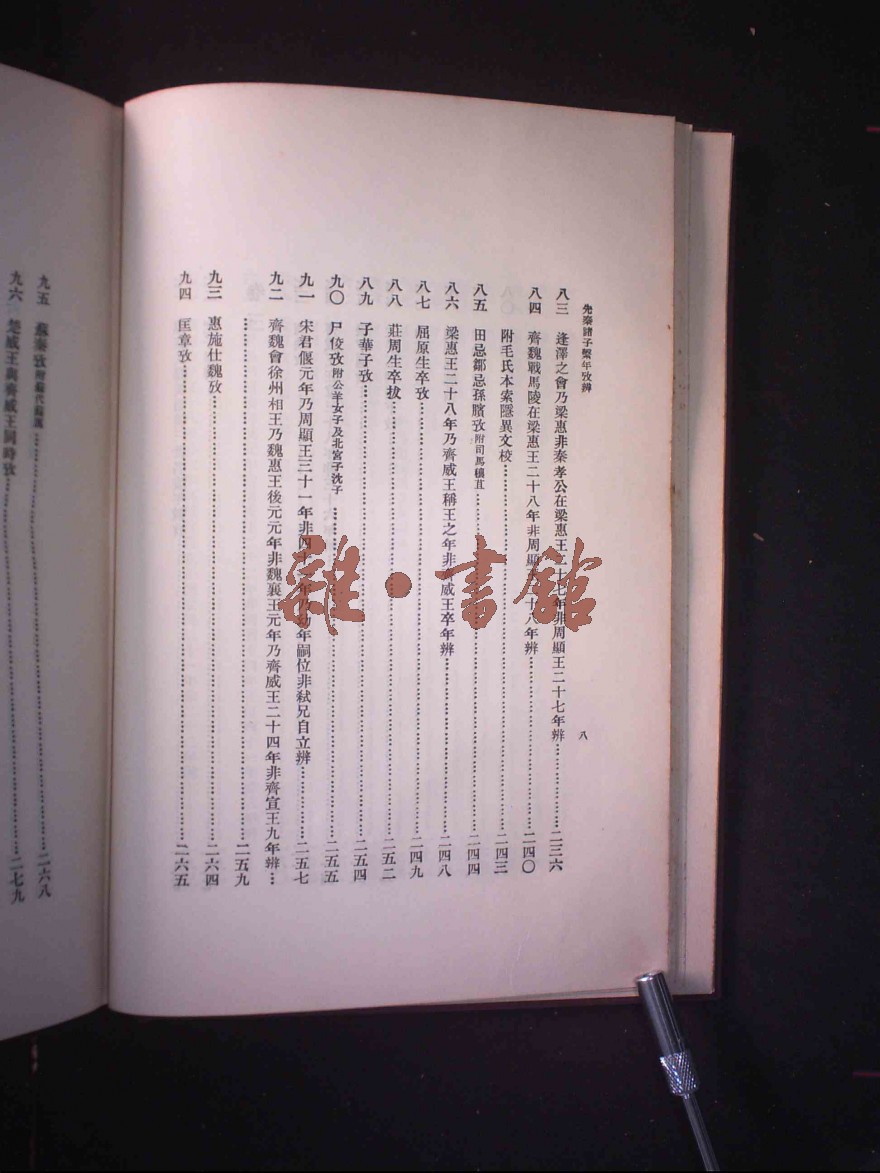 先秦諸子繫年攷辨
八
八三 逢澤之會乃梁惠非秦孝公在梁惠王二十七年非周顯王二十七年辨…………二三六
八四 齊魏戰馬陵在梁惠王二十八年非周顯王二十八年辨…………二四〇
附毛氏本索隱異文校…………二四三
八五 田忌鄒忌孫臏攷附司馬穰苴…………二四四
八六 梁惠王二十八年乃齊威王稱王之年非齊威王卒年辨…………二四八
八七 屈原生卒攷…………二四九
八八 莊周生卒攷…………二五二
八九 子華子攷…………二五四
九〇 尸佼攷附公羊女子及北宮子沈子…………二五五
九一 宋君偃元年乃周顯王三十一年非四十一年乃幼年嗣位非弒兄自立辨…………二五七
九二 齊魏會徐州相王乃魏惠王後元元年非魏襄王元年乃齊威王二十四年非齊宣王九年辨…
…………二五九
九三 惠施仕魏攷…………二六四
九四 匡章攷…………二六五
九五 蘇秦攷附蘇代蘇厲…………二六八
九六 楚威王與齊威王同時攷…………二七九
雜·書館